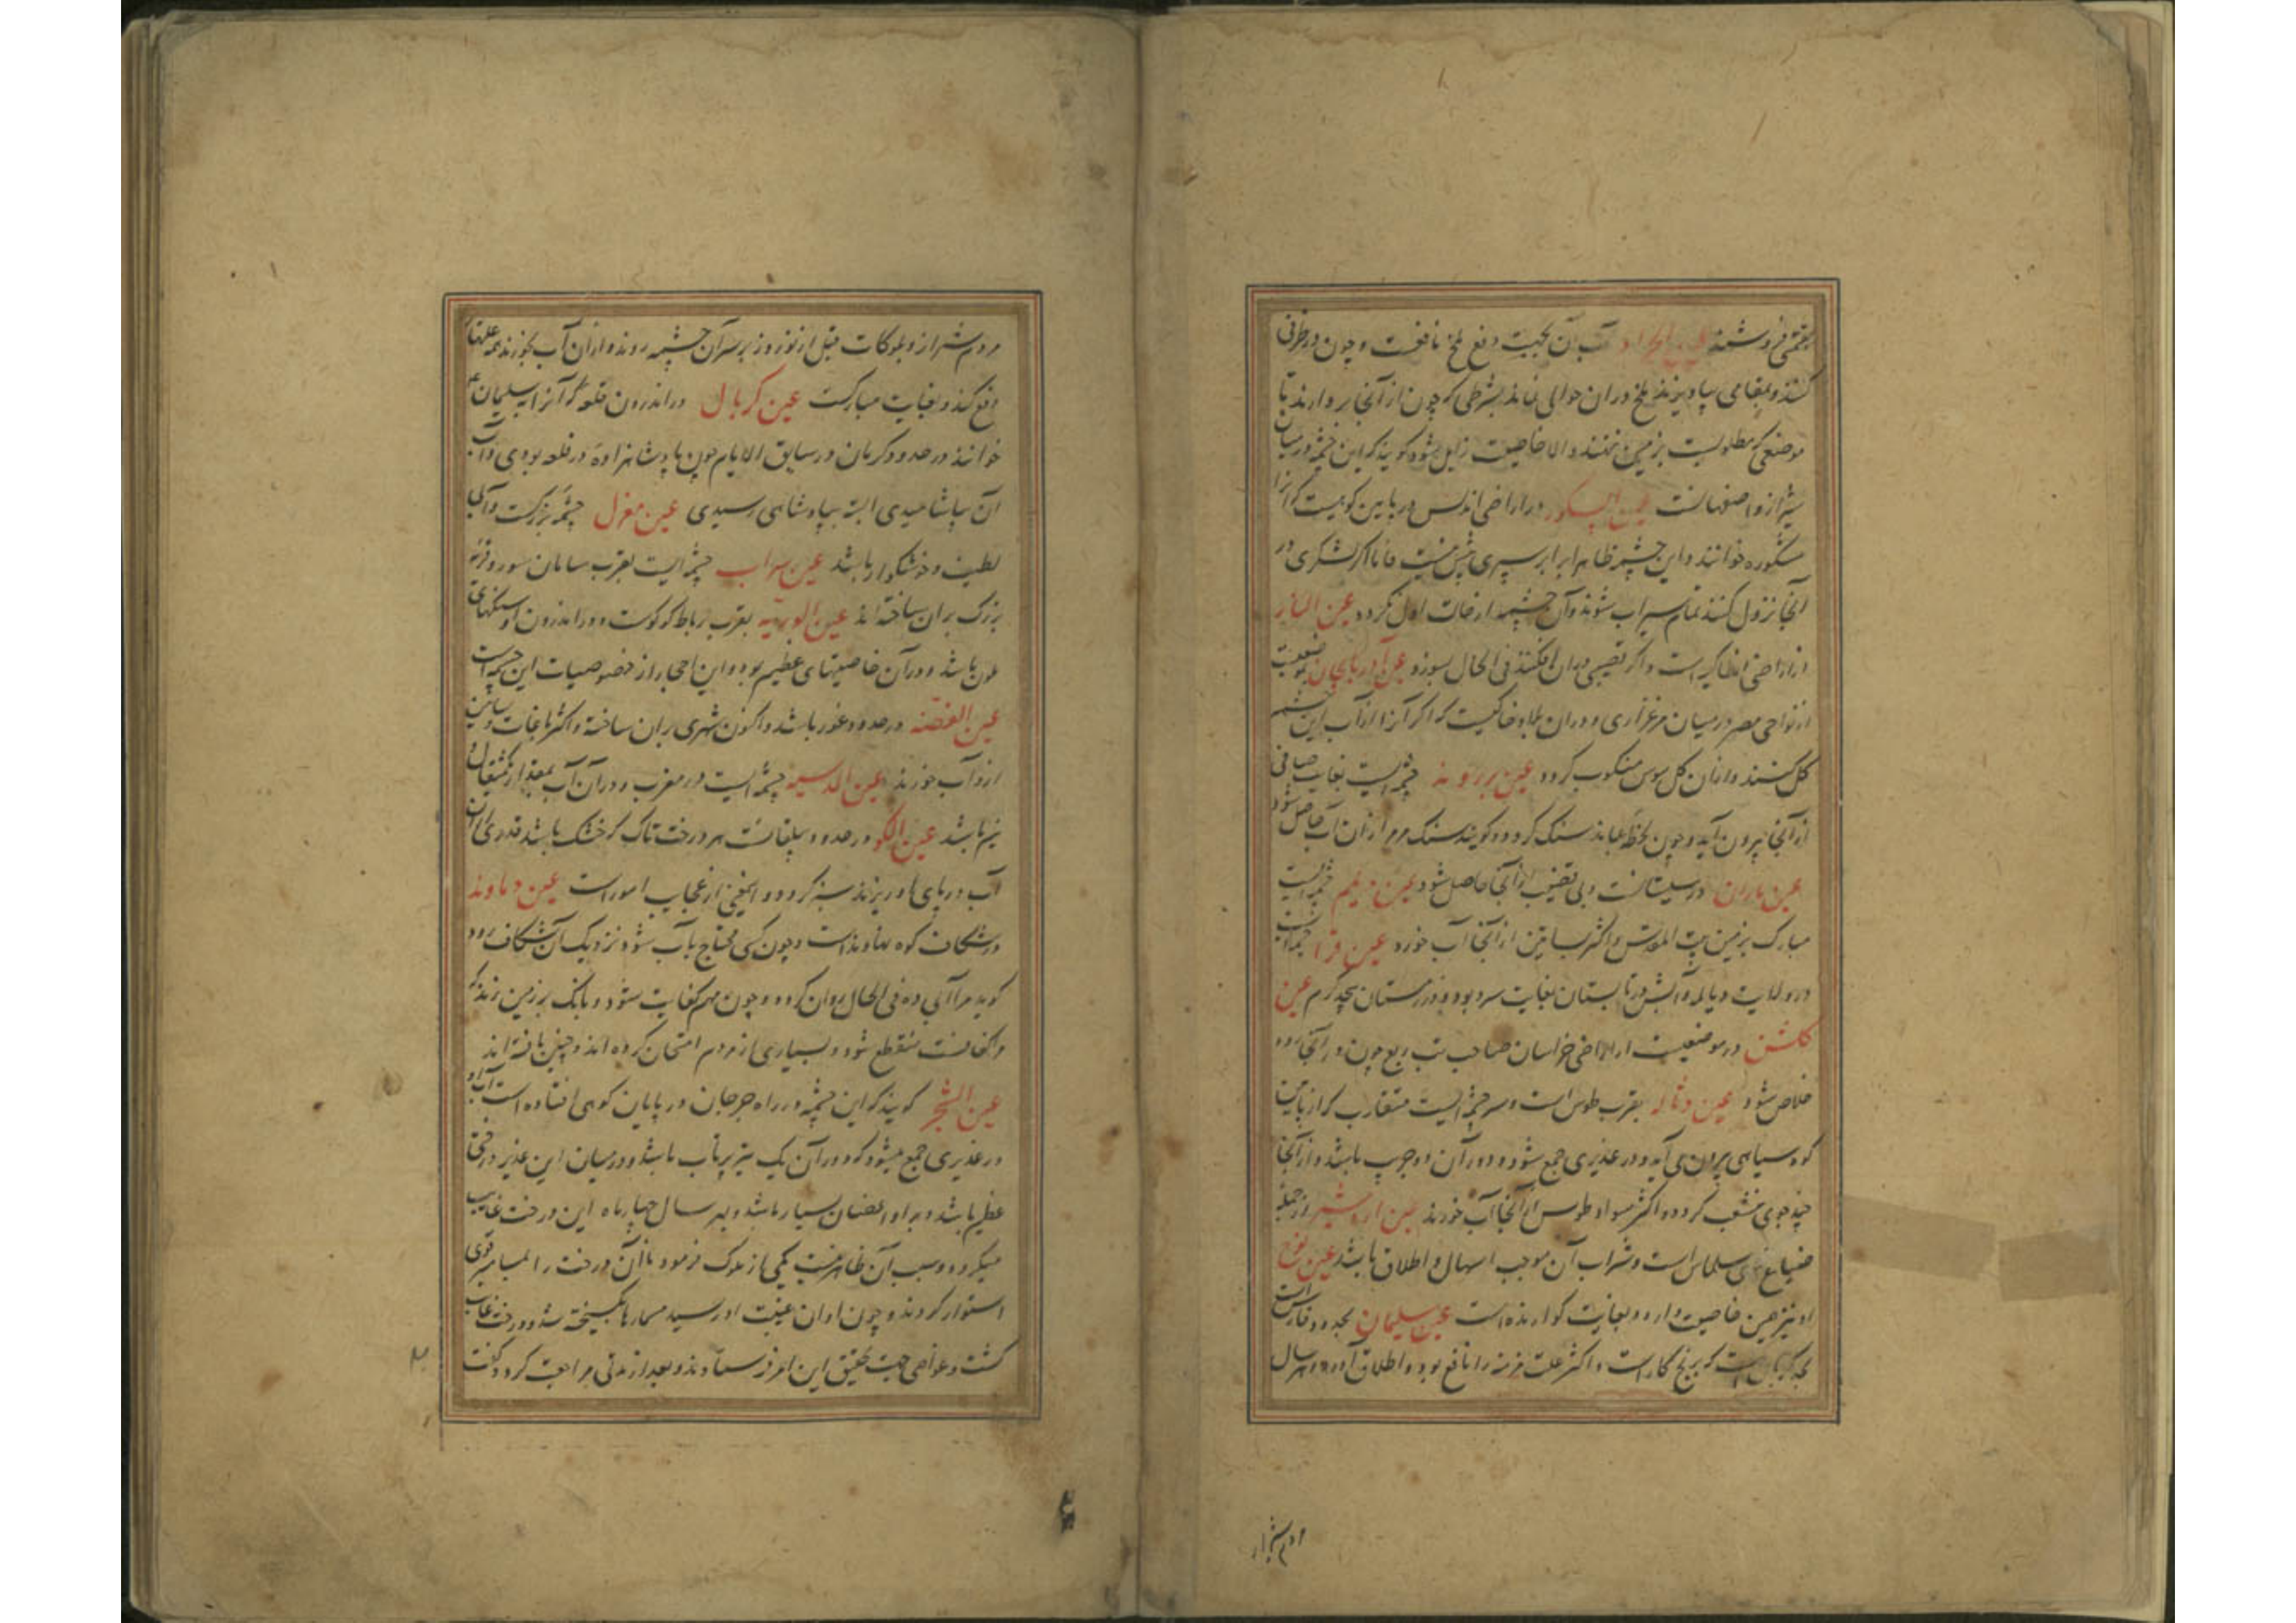 آب آن بجهت دفع ملخ نافعست و چون در ظرفی
کنند و بمقامی بیاویزند ملخ در ان حوالی نماند بشرطی که چون از آنجا بردارند تا
موضعی که مطلوبست بر زمین ننهند و الا خاصیت زایل شود گویند که این چشمه در میان
شیراز و اصفهانست عین در اراضی اندلس در پایین کوهیست که آنرا
خوانند و این چشمه ظاهرا برابر سپری بیش نیست فاما اگر لشکری در
آنجا نزول کنند تمام سیراب شوند و آن چشمه از حالت اول نکردد عین النار
در اراضی انطاکیه است و اگر قصبی در ان افکنند فی الحال بسوزد عین
از نواحی مصر در میان مرغزاری و در ان بلاد خاکیست که اگر آنرا از آب این چشمه
کل کنند و از ان کل موش کردد عین چشمه ایست بغایت صافی
از آنجا بیرون آید و چون لحظه بماند سنک کردد و کویند سنک مرمر از ان آب حاصل شود
عین باران در سیستانست و نی از آنجا حاصل شود عین چشمه ایست
مبارک بر زمین بیت المقدس و اکثر بساتین از آنجا آب خورد عین
در ولایت و آبش در تابستان بغایت سرد بود و در زمستان بیحد گرم عین
در موضعیست از اراضی خراسان صاحب تب ربع چون در آنجا رود
خلاص شود عین بقرب طوس است و سر چشمه ایست متقارب که از پایین
کوه سیاهی بیرون می آید و در غدیری جمع شود و دور آن دو جریب باشد و از آنجا
چند جوی منشعب کردد و اکثر سواد طوس از آنجا آب خورند عین اردشیر از جمله
ضیاع سلماس است و شراب آن موجب اسهال و اطلاق باشد عین
او نیز همین خاصیت دارد و بغایت کوارنده است عین سلیمان بحدود فارس است
که برنج کار است و اکثر علت مزمنه را نافع بود و اطلاق آورد و هر سال
مردم شیراز
مردم شیراز و بلوکات قبل از نوروز بر سر آن چشمه روند و از ان آب بخورند همه علتها
دفع کند و بغایت مبارکست عین کربال در اندرون قلعه که آنرا سلیمان
خوانند در حدود کرمان در سابق الایام چون پادشاهزاده در قلعه بودی و آب
آن بیاشامیدی البته بپادشاهی رسیدی عین مغزل چشمه بزرکست و آبی
لطیف و خوشکوار باشد عین سراب چشمه ایست بقرب سامان سور و قریه
بزرک بر ان ساخته اند عین بقرب رباط است و در اندرون او سنکهای
ملون باشد و در آن خاصیتهای عظیم بود و این احجار از خصوصیات این چشمه است
عین الفضه در حدود غور باشد و اکنون شهری بر ان ساخته و اکثر باغات و بساتین
ازو آب خورند عین چشمه ایست در مغرب و در آن آب بمقدار مثقال
نیز باشد عین در حدود بیلقانست هر درخت تاک که خشک باشد قدری از ان
آب در پای او ریزند سبز کردد و این نیز از عجایب امور است عین دماوند
در شکاف کوه نهاوند است و چون کسی محتاج بآب شود نزدیک آن شکاف رود
کوید مرا آبی ده فی الحال روان کردد و چون مهم کفایت شود و بانک بر زمین زند که
مرا کفافست منقطع شود و بسیاری از مردم امتحان کرده اند و چنین یافته اند
عین الشجر کویند که این چشمه در راه جرجان در پایان کوهی افتاده است آب او
در غدیری جمع میشود که دور آن یک تیر پرتاب باشد و در میان این غدیر درختی
عظیم باشد و او را اغصان بسیار باشد و بهر سال چهار ماه این درخت غایب
میکردد و سبب آن ظاهر نیست یکی از ملوک فرمود تا آن درخت را بمسامیر قوی
استوار کردند و چون اوان غیبت او رسید مسمارها کسیخته شد و درخت غایب
کشت و غواصی جهت تحقیق این امر فرستادند و بعد از مدتی مراجعت کرد و گفت